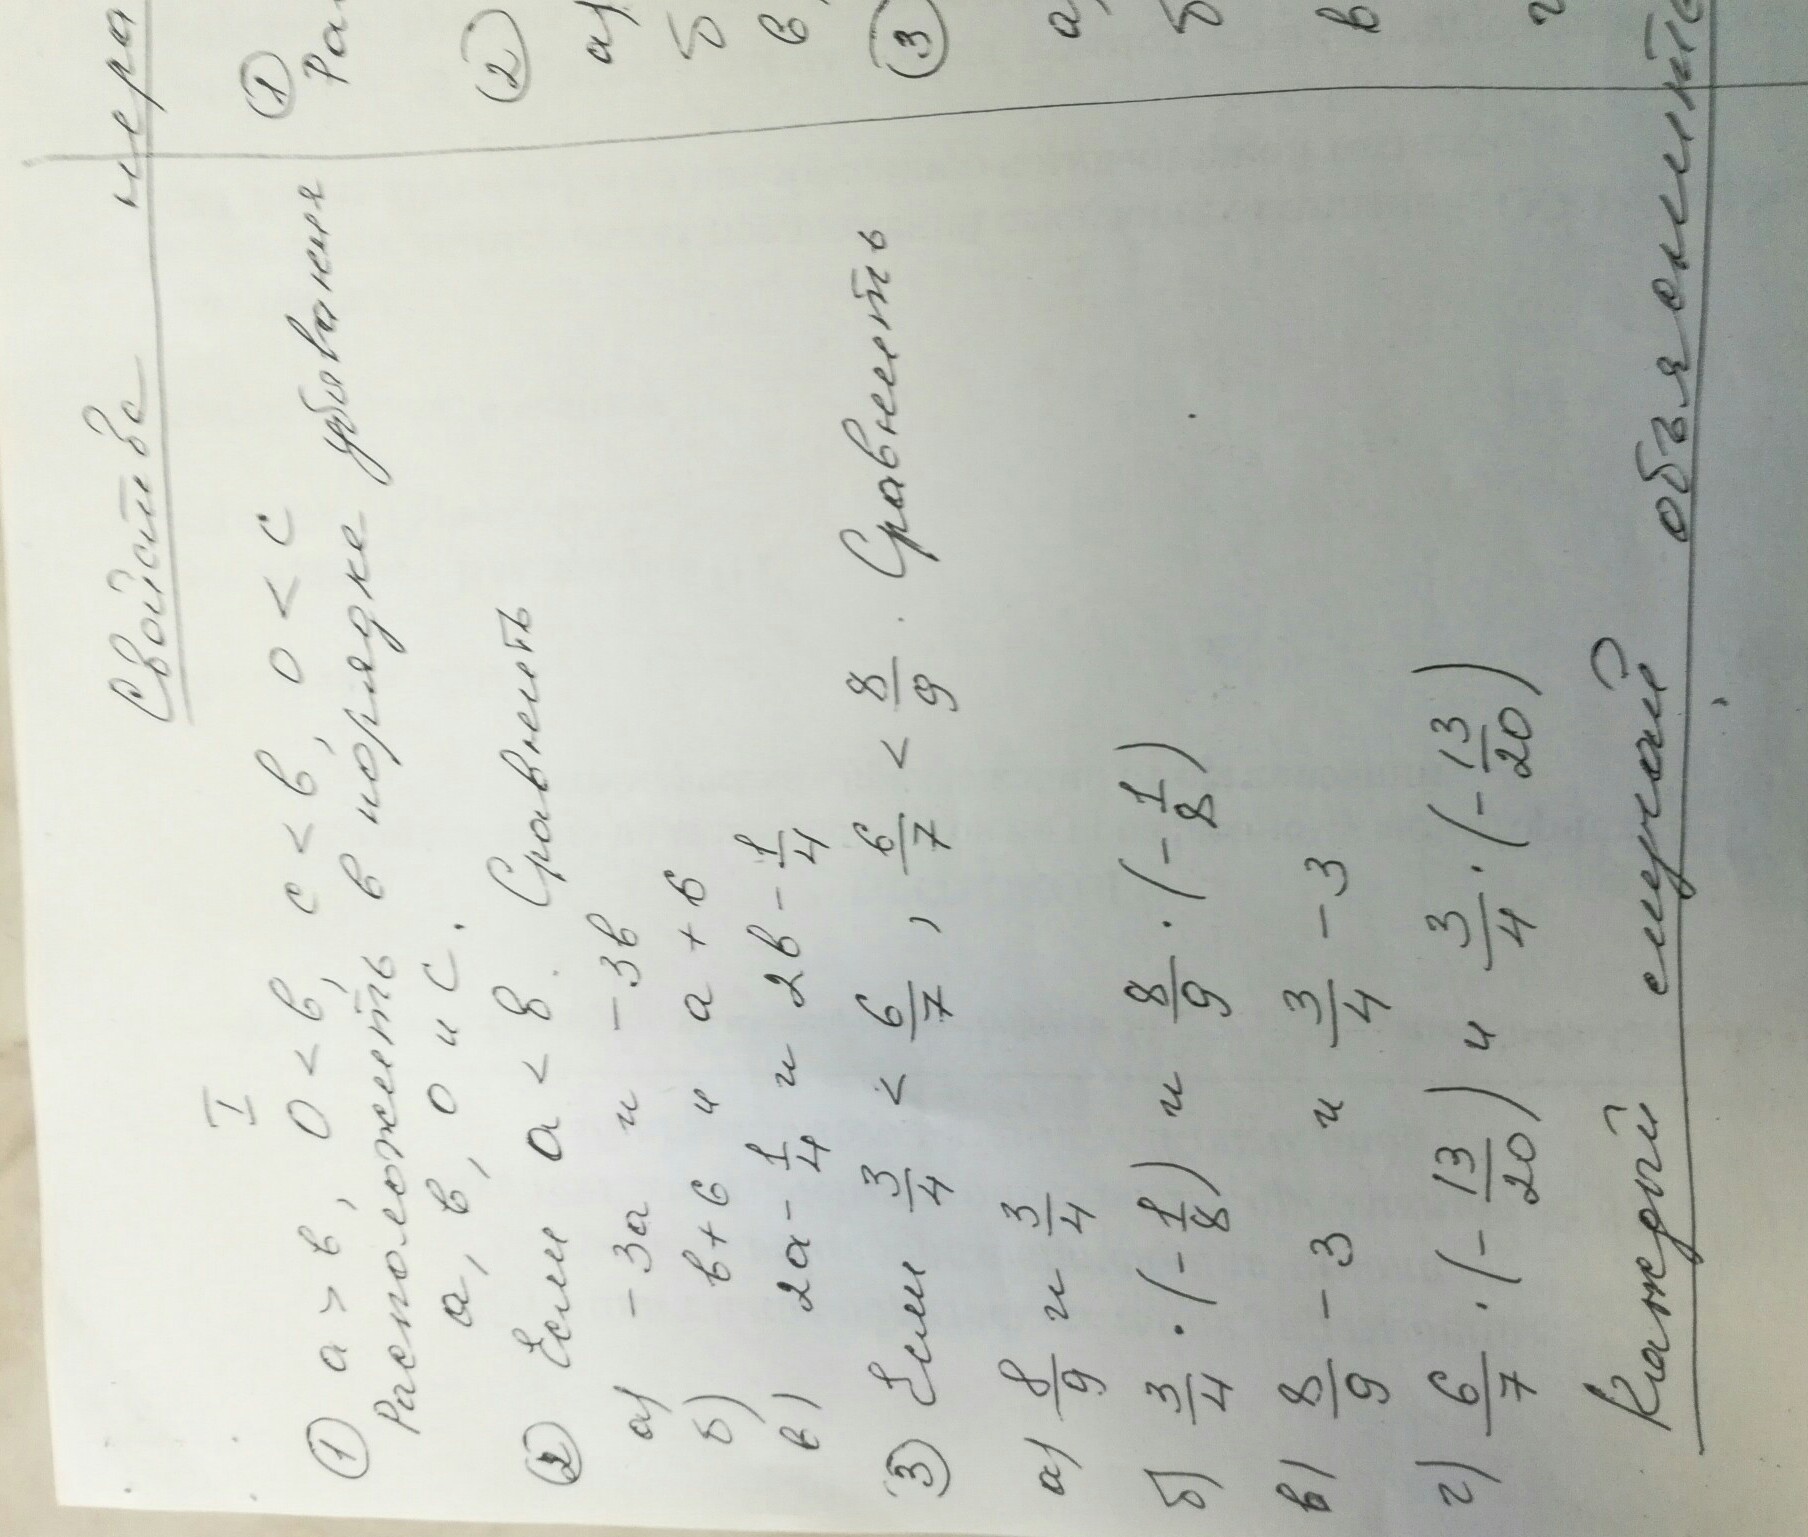 Свойства
I
① a > в, 0 < в, c < в, 0 < c
Расположить в порядке убывания
a, в, 0 и c.
② Если a < в. Сравнить
а) -3a и -3в
б) в+6 и a+6
в) 2a - 1/4 и 2в - 1/4
③ Если 3/4 < 6/7, 6/7 < 8/9. Сравнить
а) 8/9 и 3/4
б) 3/4 · (-1/8) и 8/9 · (-1/8)
в) 8/9 - 3 и 3/4 - 3
г) 6/7 · (-13/20) и 3/4 · (-13/20)
Каждый случай
①
②
а)
б
в
③
а)
б
в
г